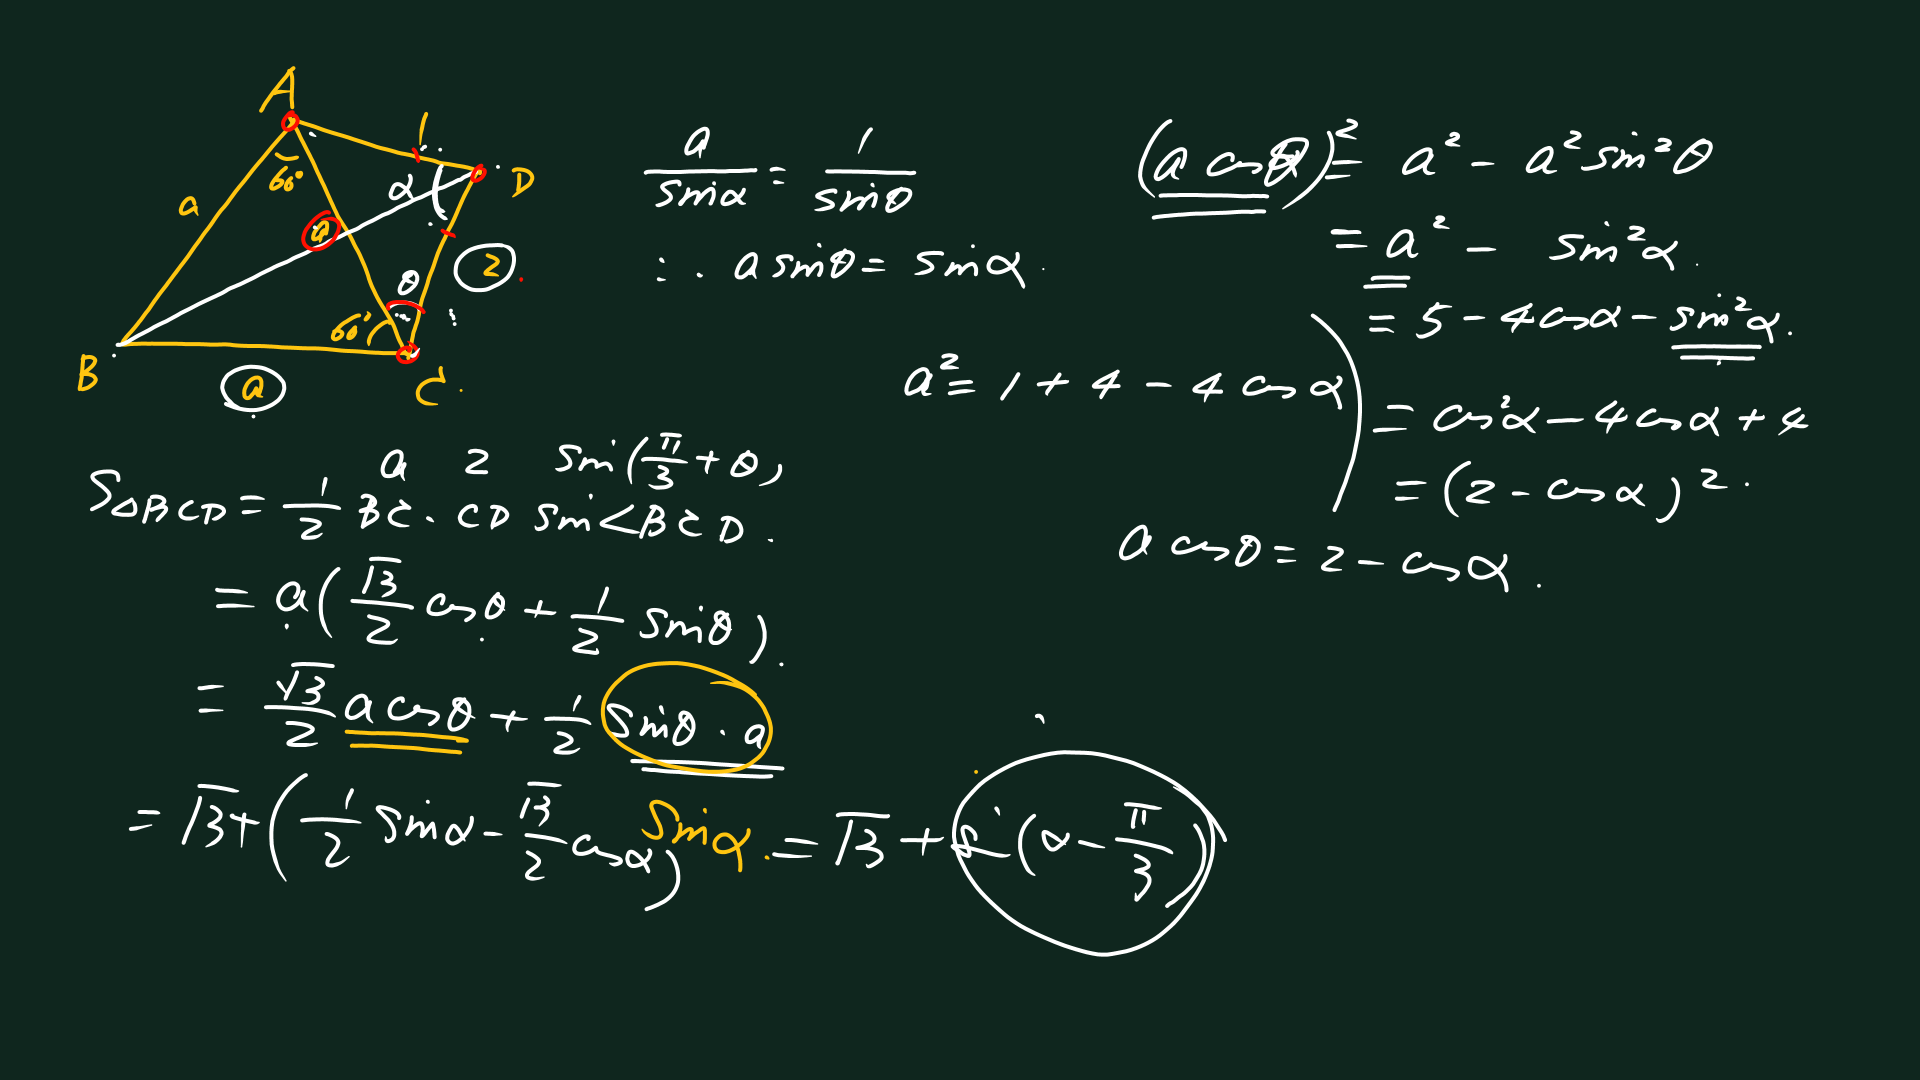 A
1
D
60°
α
a
a
2
θ
60°
B
a
C
a/sinα = 1/sinθ
∴ a sinθ = sinα.
(a cosθ)² = a² - a² sin²θ
= a² - sin²α.
= 5 - 4cosα - sin²α.
a² = 1 + 4 - 4 cosα
= cos²α - 4cosα + 4
= (2 - cosα)².
a cosθ = 2 - cosα.
a 2 sin(π/3 + θ)
S△BCD = 1/2 BC · CD sin∠BCD.
= a(√3/2 cosθ + 1/2 sinθ).
= √3/2 a cosθ + 1/2 sinθ · a
sinα.
= √3 + (1/2 sinα - √3/2 cosα) = √3 + sin(α - π/3)